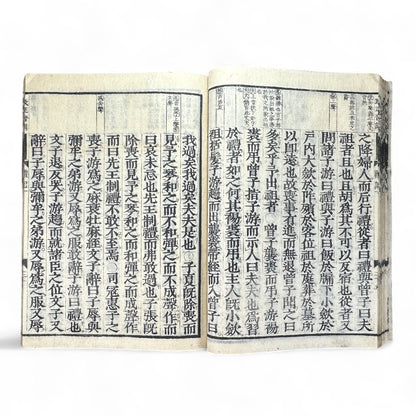 之降婦人而后行禮從者曰禮與曾子曰夫
祖者且也且胡爲其不可以反宿也從者又
問諸子游曰禮與子游曰飯於牖下小斂於
戶內大斂於阼殯於客位祖於庭葬於墓所
以即遠也故喪事有進而無退曾子聞之曰
多矣乎予出祖者 曾子襲裘而弔子游裼
裘而弔曾子指子游而示人曰夫夫也爲習
於禮者如之何其裼裘而弔也主人旣小斂
袒括髮子游趨而出襲裘帶絰而入曾子曰
我過矣我過矣夫夫是也 子夏旣除喪而
見予之琴和之而不和彈之而不成聲作而
曰哀未忘也先王制禮而弗敢過也子張旣
除喪而見予之琴和之而和彈之而成聲作
而曰先王制禮不敢不至焉 司寇惠子之
喪子游爲之麻衰牡麻絰文子辭曰子辱與
彌牟之弟游又辱爲之服敢辭子游曰禮也
文子退反哭子游趨而就諸臣之位文子又
辭曰子辱與彌牟之弟游又辱爲之服又辱